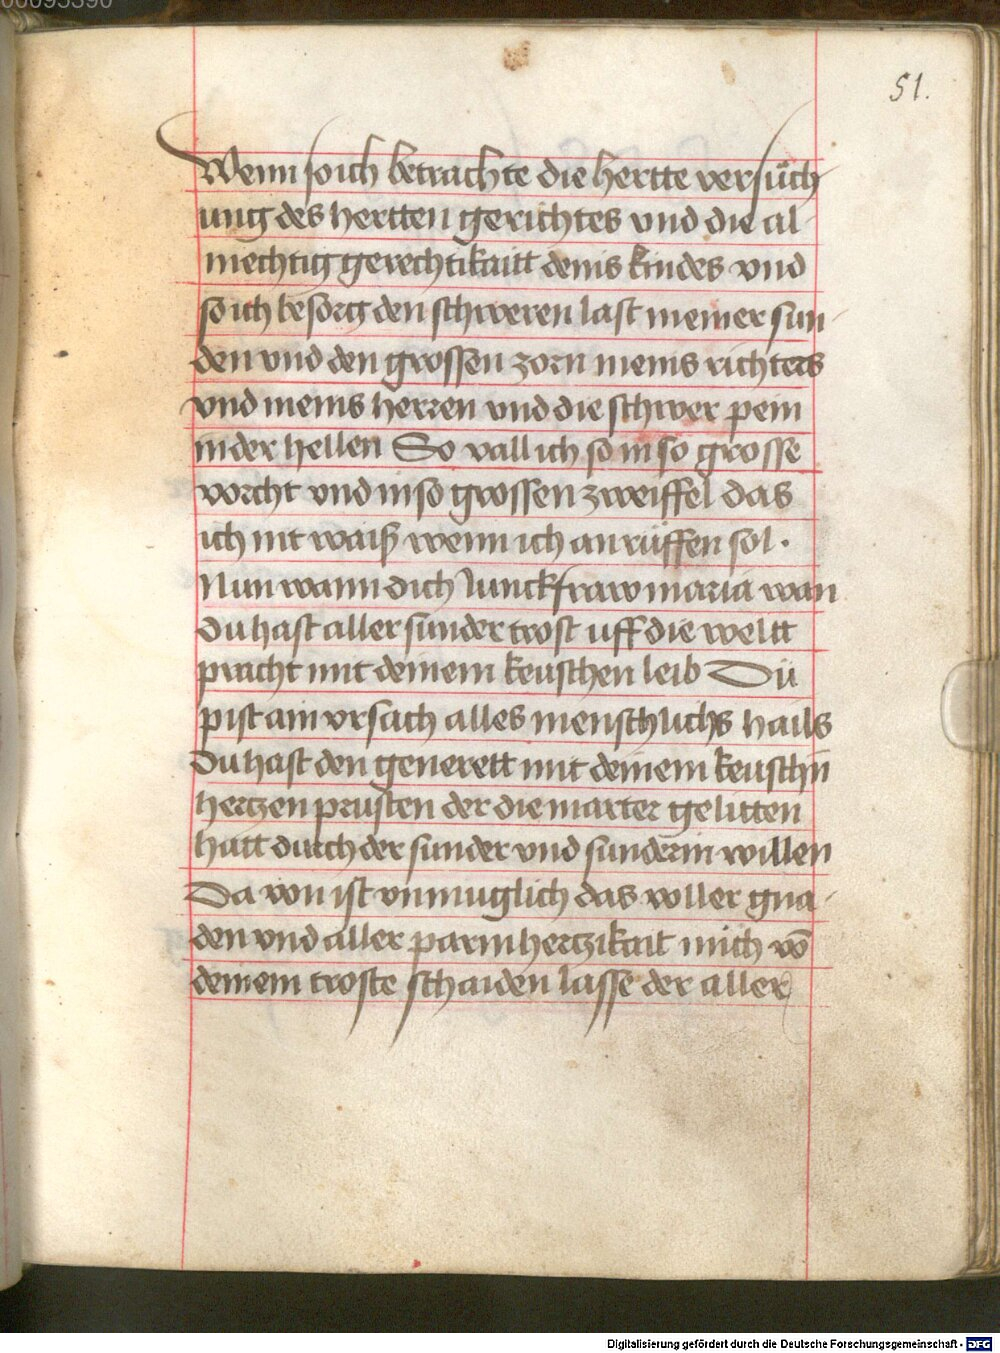 00095390
51.
Wenn so ich betrachte die hertte versůch
ung des hertten gerichtes vnd die al-
mechtig gerechtikaitt deins kindes vnd
so ich besorg den schweren last meiner sun-
den vnd den grossen zorn meins richters
vnd meins herren vnd die schwer pein
in der hellen So vall ich so in so grosse
vorcht vnd in so grossen zweiffel das
ich nit waiß wenn ich an rüffen sol.
Nun wann dich Junckfraw maria wan
Du hast aller sunder trost uff die weltt
pracht mit deinem keuschen leib Dü
pist ain vrsach alles menschlichs hails
Du hast den generett mit deinem keuschn̄
hertzen prusten der die marter gelitten
hatt durch der sunder vnd sunderin willen
Da von ist vnmuglich das voller gna-
den vnd aller parmhertzikait mich vō
deinem troste schaiden lasse der aller
Digitalisierung gefördert durch die Deutsche Forschungsgemeinschaft - DFG